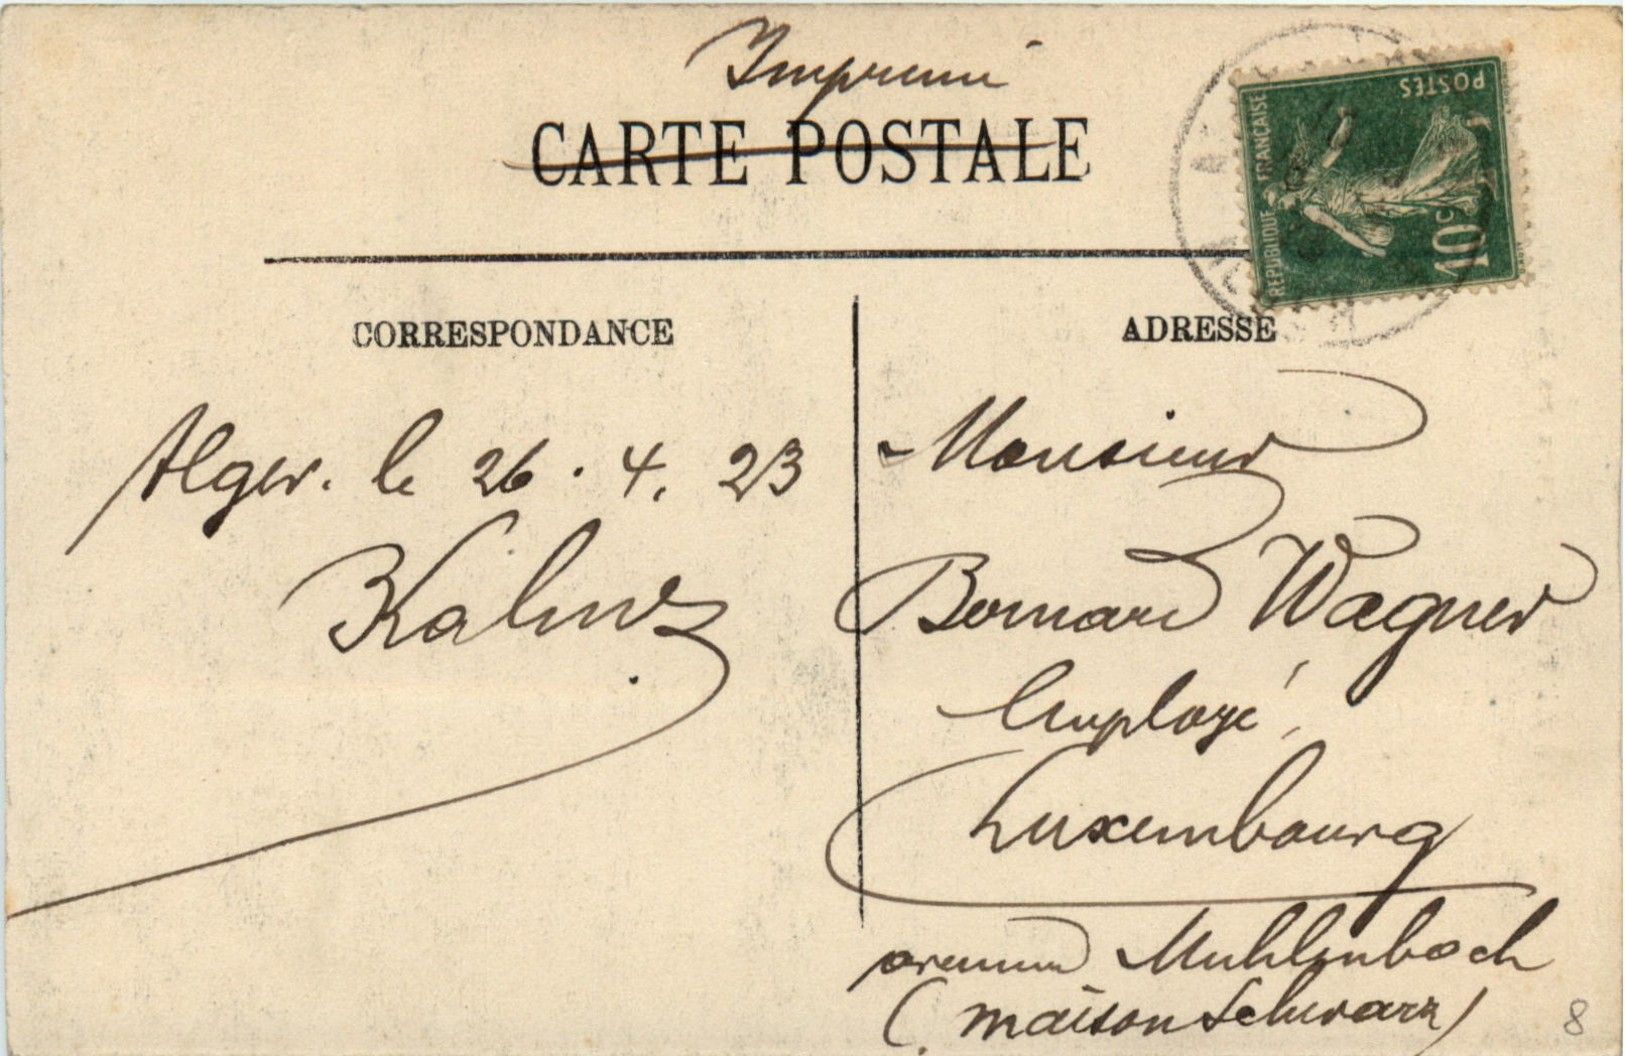 Imprimé
CARTE POSTALE
REPUBLIQUE FRANCAISE
POSTES
10c
CORRESPONDANCE
ADRESSE
Alger. le 26. 4. 23
Monsieur
Bernard Wagner
Employé,
Luxembourg
Muhlenbach
(maison Schwarz)
8